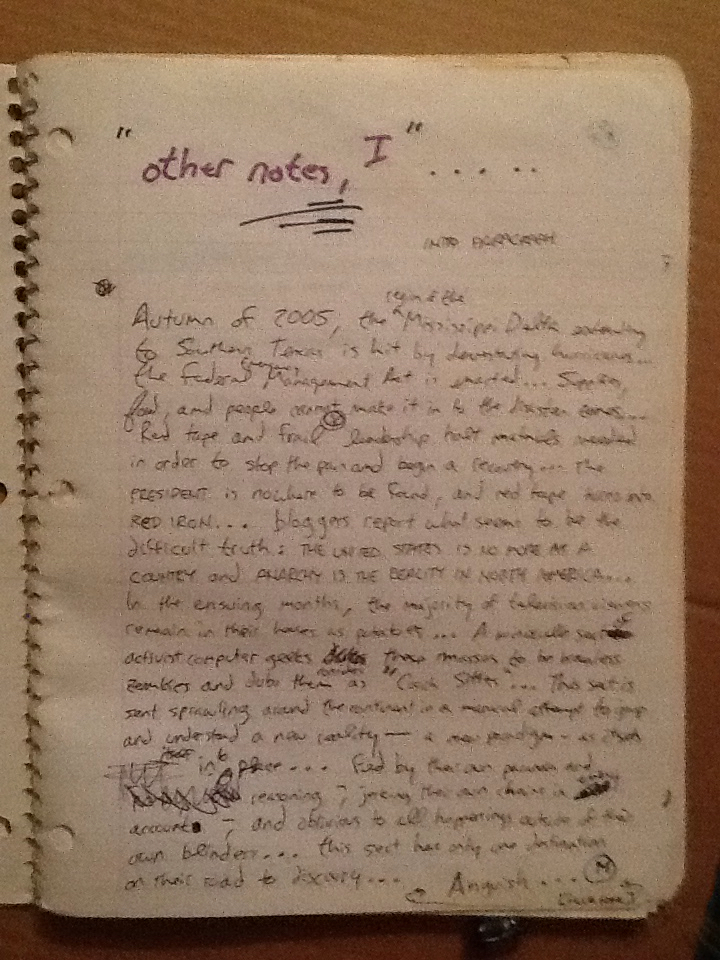 "other notes, I" . . . . .
INTO PARAGRAPH
region of the
Autumn of 2005, the Mississippi Delta extending
to Southern Texas is hit by devastating hurricanes...
the Federal Management Act is enacted... Supplies,
food, and people cannot make it in to the disaster zones...
Red tape and frail leadership halt materials needed
in order to stop the pain and begin a recovery... The
PRESIDENT is nowhere to be found, and red tape turns into
RED IRON... bloggers report what seems to be the
difficult truth: THE UNITED STATES IS NO MORE AS A
COUNTRY and ANARCHY IS THE REALITY IN NORTH AMERICA...
In the ensuing months, the majority of television viewers
remain in their homes as potatoes... A minuscule sect of
activist computer geeks these masses to be brainless
zombies and dubs them as "Couch Sitters"... This sect is
sent sprawling around the continent in a manical attempt to grasp
and understand a new reality — a new paradigm - as
itself in place... Fueled by their own and
reasoning ; their own chains in
account ; and oblivious to all happenings outside of their
own blinders... this sect has only one destination
on their road to discovery... Anguish... M